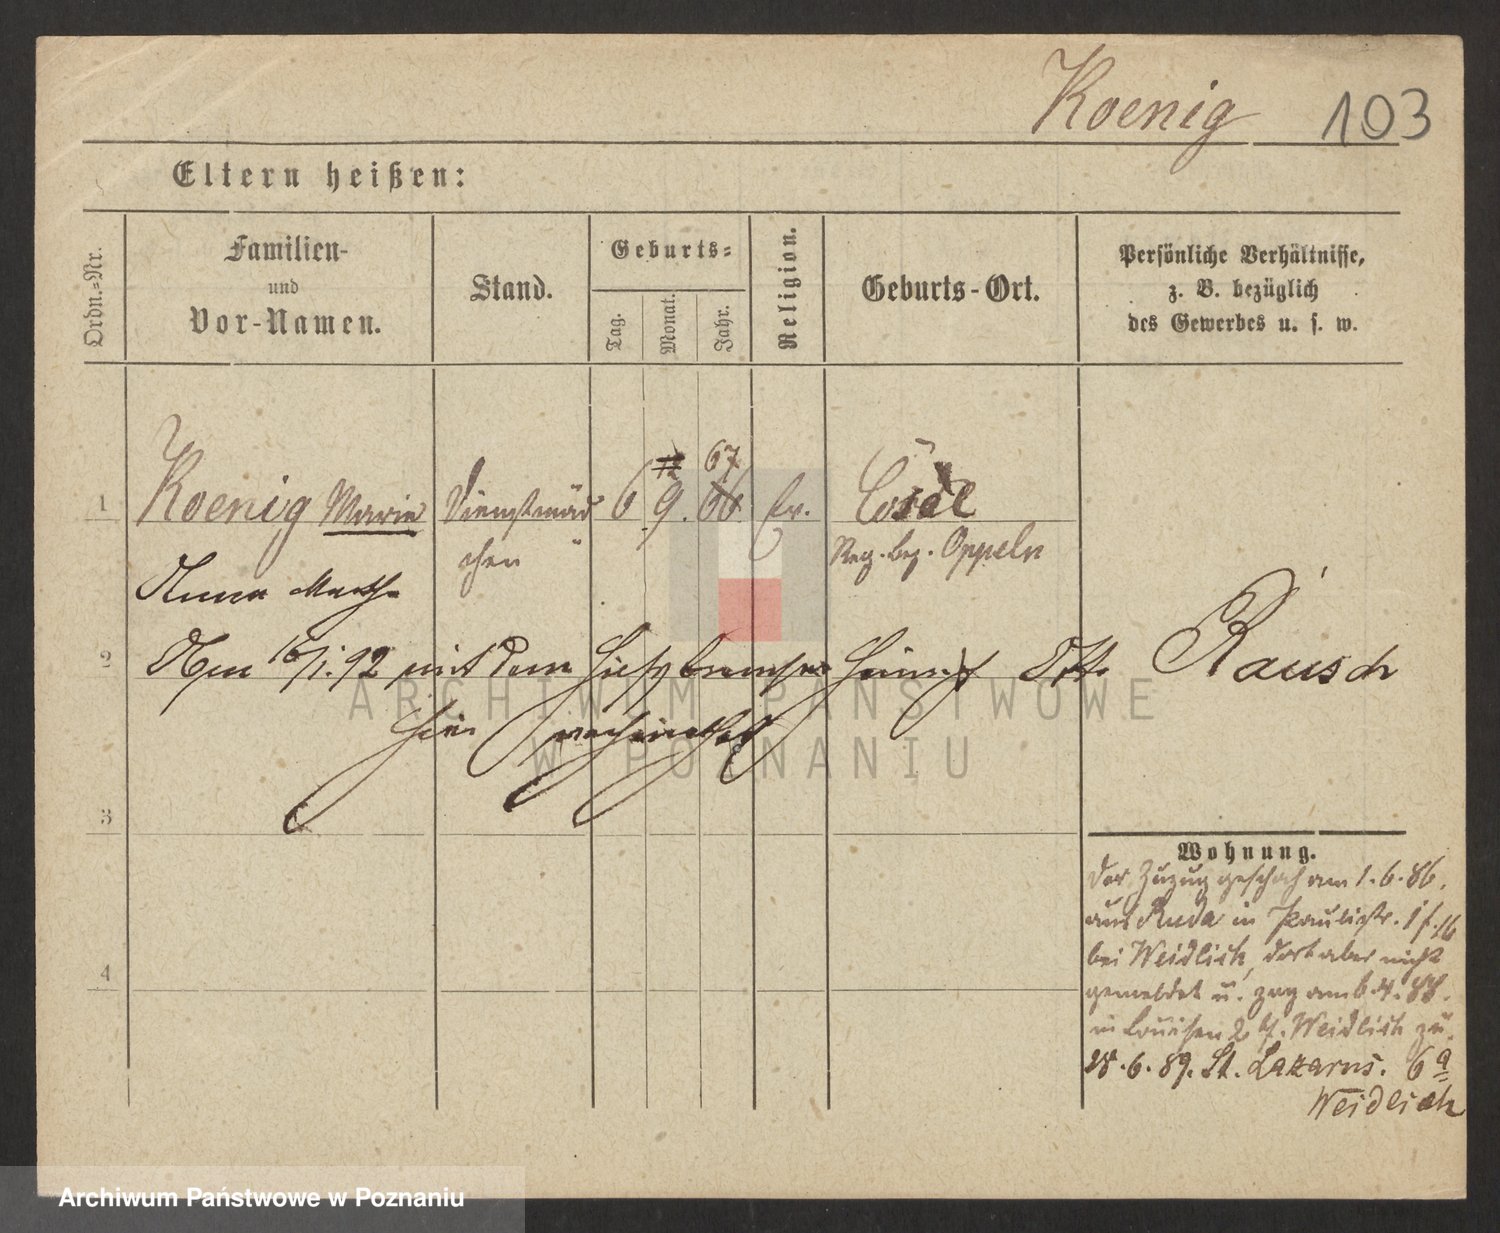 Koenig 103
Eltern heißen:
Ordn.-Nr.
Familien-
und
Vor-Namen.
Stand.
Geburts-
Tag.
Monat.
Jahr.
Religion.
Geburts-Ort.
Persönliche Verhältnisse,
z. B. bezüglich
des Gewerbes u. s. w.
67
1 Koenig Marie Dienstmäd 6 9. 66 ev. Cosel
chen Reg. Bez. Oppeln
Anna Martha
2 Am 16/1. 92 mit dem Hilfsbremser Heinrich Otto Rausch
hier verheirathet
3
4
Wohnung.
Der Zuzug geschah am 1. 6. 86.
aus Ruda in Paulistr.
bei Weidlich, dort aber nicht
gemeldet u. zog am 6. 4. 88.
in Louisen 2 b. Weidlich zu.
28. 6. 89. St. Lazarus. 6a
Weidlich
ARCHIWUM PAŃSTWOWE
W POZNANIU
Archiwum Państwowe w Poznaniu